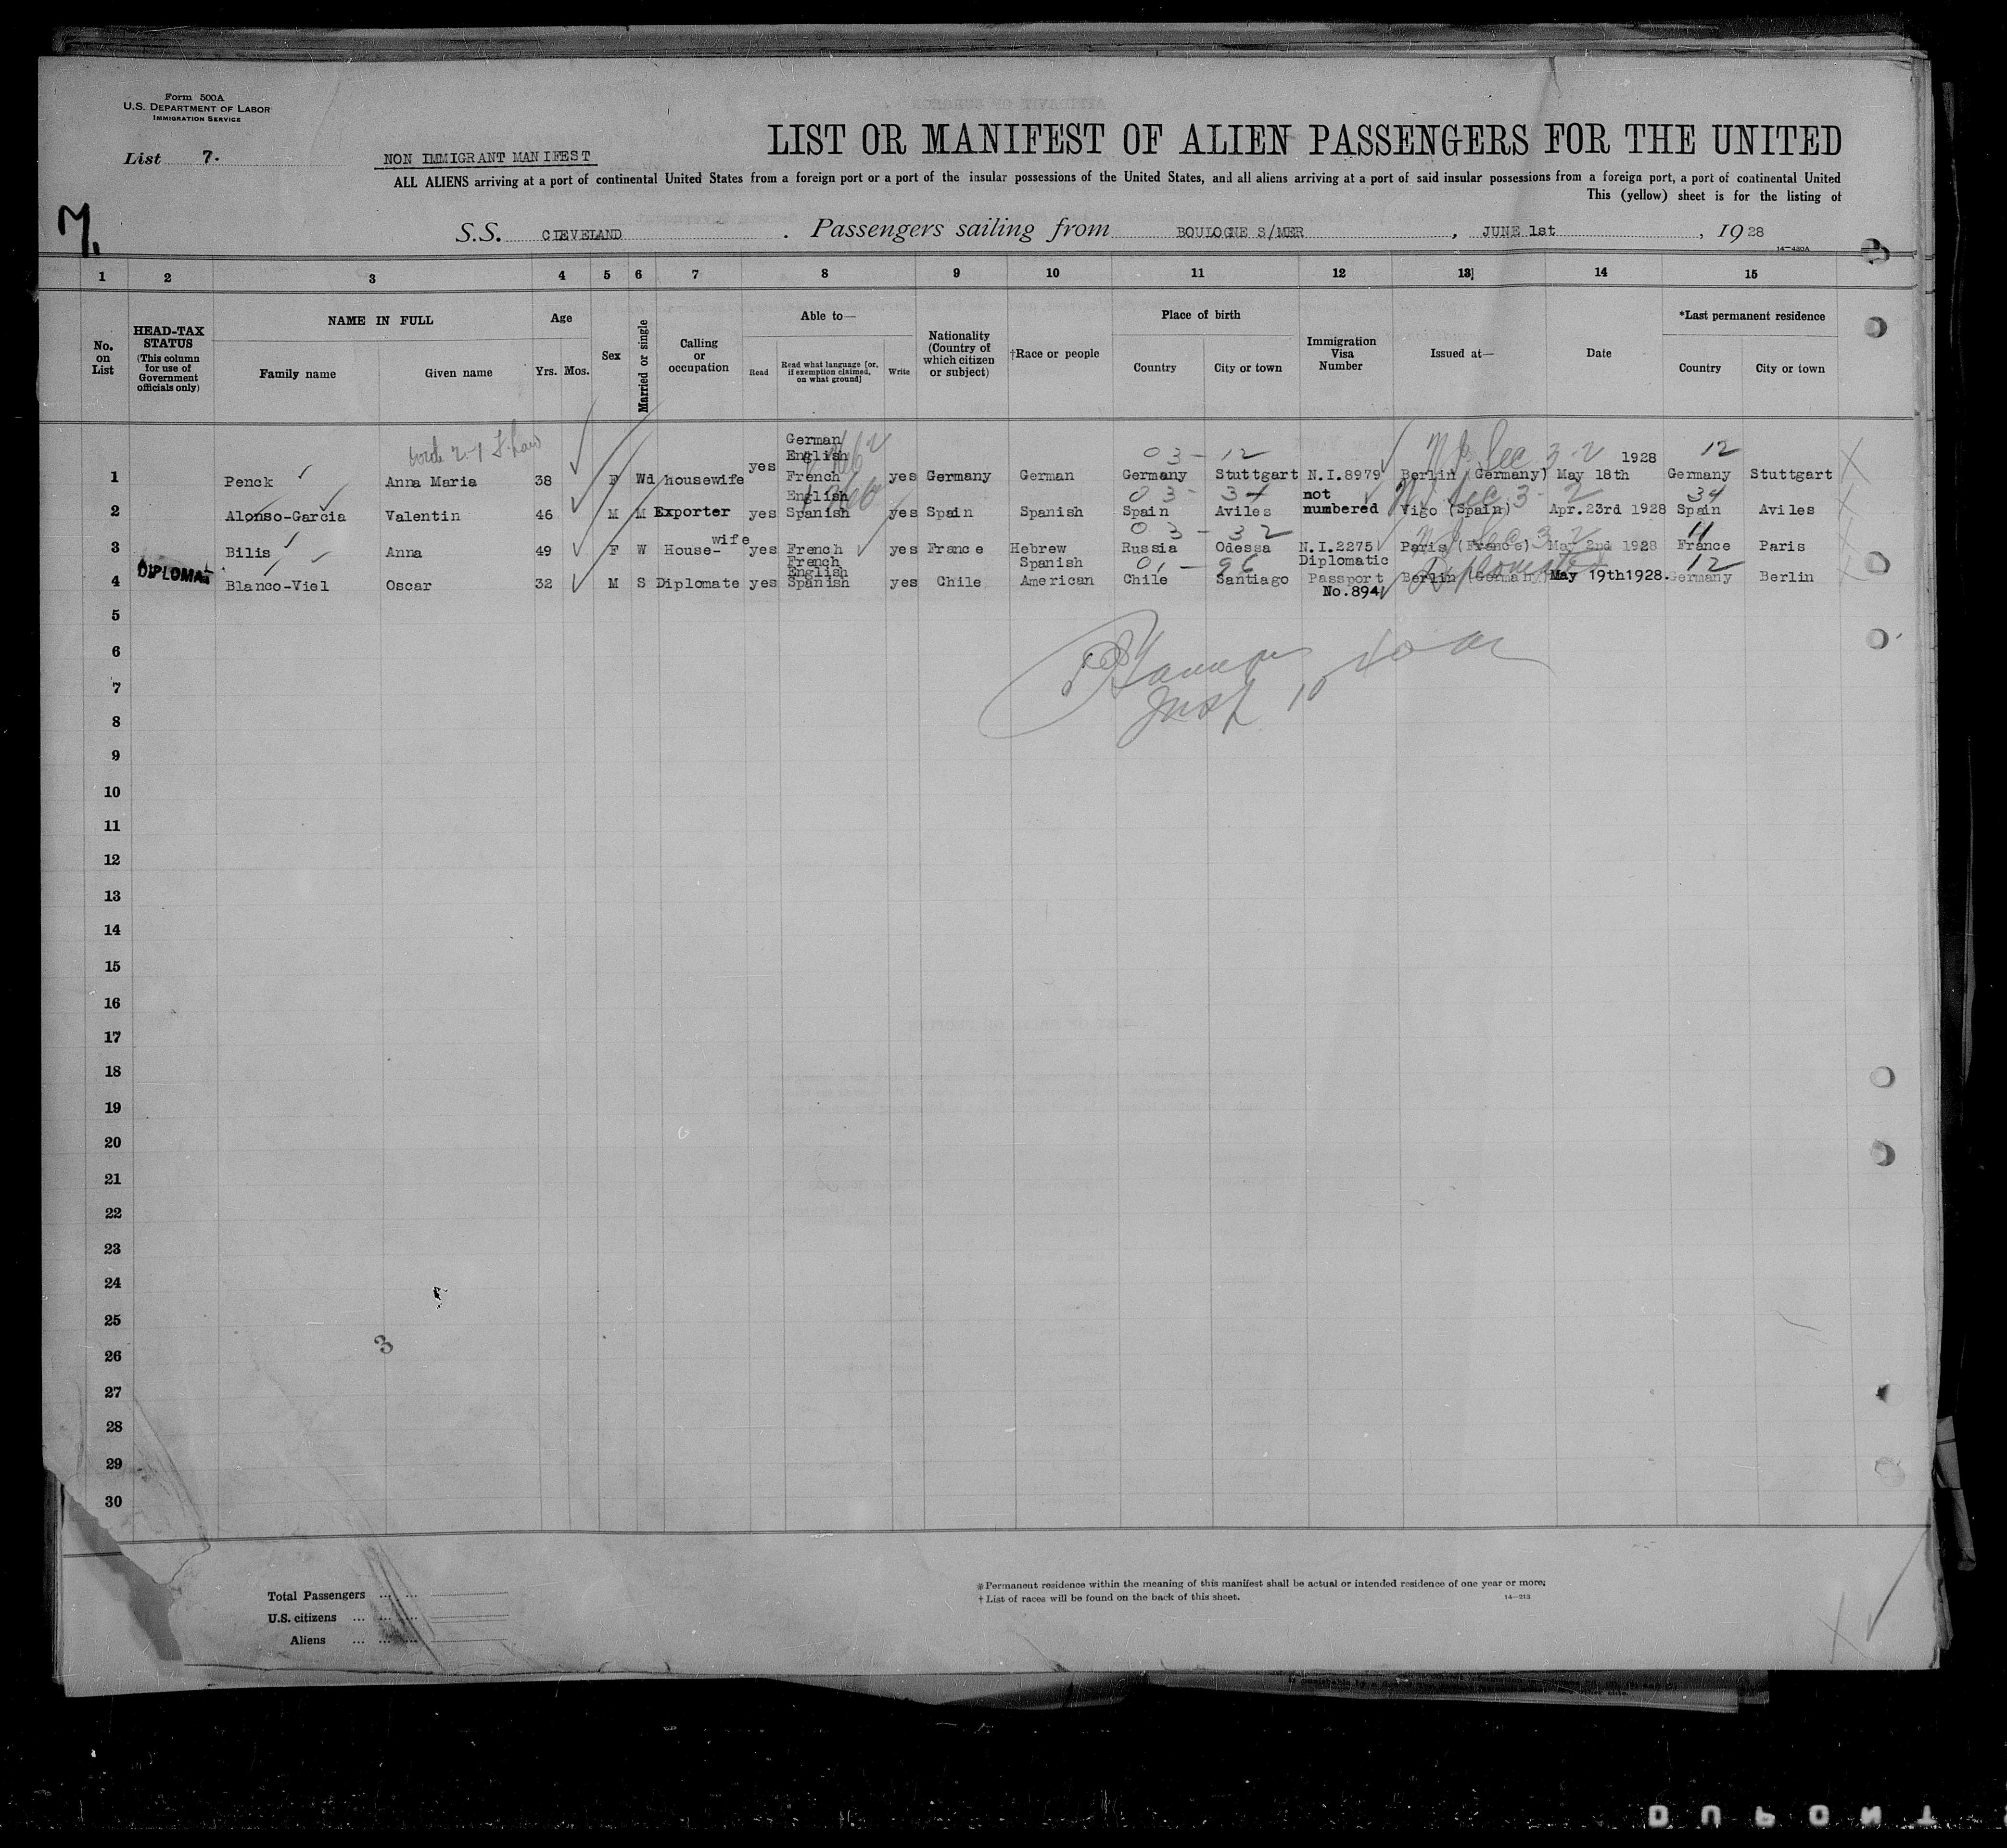 Form 500A
U.S. DEPARTMENT OF LABOR
IMMIGRATION SERVICE
LIST OR MANIFEST OF ALIEN PASSENGERS FOR THE UNITED
List 7.
NON IMMIGRANT MANIFEST
ALL ALIENS arriving at a port of continental United States from a foreign port or a port of the insular possessions of the United States, and all aliens arriving at a port of said insular possessions from a foreign port, a port of continental United
This (yellow) sheet is for the listing of
7.
S.S. CLEVELAND. Passengers sailing from BOULOGNE S/MER, JUNE 1st, 1928
14-420A
1 2 3 4 5 6 7 8 9 10 11 12 13 14 15
No. on List
HEAD-TAX STATUS (This column for use of Government officials only)
NAME IN FULL
Family name Given name
Age
Yrs. Mos.
Sex
Married or single
Calling or occupation
Able to—
Read
Read what language [or, if exemption claimed, on what ground]
Write
Nationality (Country of which citizen or subject)
†Race or people
Place of birth
Country City or town
Immigration Visa Number
Issued at—
Date
*Last permanent residence
Country City or town
03-12 12
1 Penck Anna Maria 38 F Wd housewife yes German English French yes Germany German Germany Stuttgart N.I.8979 Berlin (Germany) May 18th 1928 Germany Stuttgart
03-34 34
2 Alonso-Garcia Valentin 46 M M Exporter yes English Spanish yes Spain Spanish Spain Aviles not numbered Vigo (Spain) Apr.23rd 1928 Spain Aviles
03-32 11
3 Bilis Anna 49 F W House-wife yes French yes France Hebrew Russia Odessa N.I.2275 Paris (France) May 2nd 1928 France Paris
01-96 12
DIPLOMAT
4 Blanco-Viel Oscar 32 M S Diplomate yes French English Spanish yes Chile Spanish American Chile Santiago Diplomatic Passport No.894 Berlin (Germany) May 19th1928. Germany Berlin
Diplomat
5
6
7
8
9
10
11
12
13
14
15
16
17
18
19
20
21
22
23
24
25
3
26
27
28
29
30
Total Passengers
U.S. citizens
Aliens
*Permanent residence within the meaning of this manifest shall be actual or intended residence of one year or more.
† List of races will be found on the back of this sheet.
14-213
DUPONT